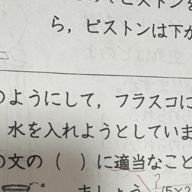 ら，ピストンは下か
のようにして，フラスコに
水を入れようとしていま
の文の（　）に適当なこと
ましょう